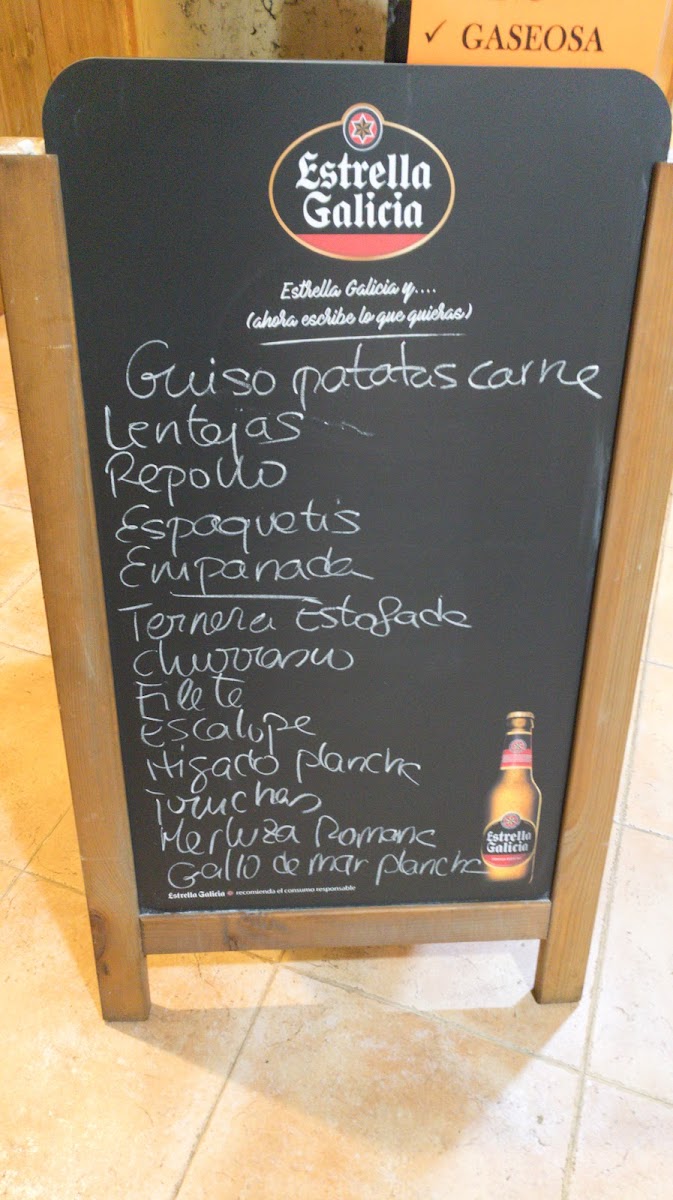 ✓ GASEOSA
Estrella
Galicia
Estrella Galicia y....
(ahora escribe lo que quieras)
Guiso patatas carne
Lentejas
Repollo
Espaquetis
Empanada
Ternera Estofada
churrasco
Filete
Escalope
Higado plancha
Truchas
Merluza Romana
Gallo de mar plancha
Estrella
Galicia
Estrella Galicia recomienda el consumo responsable